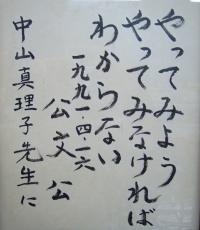 やってみよう
やってみなければ
わからない
一九九一・四・一六
公文公
中山真理子先生に